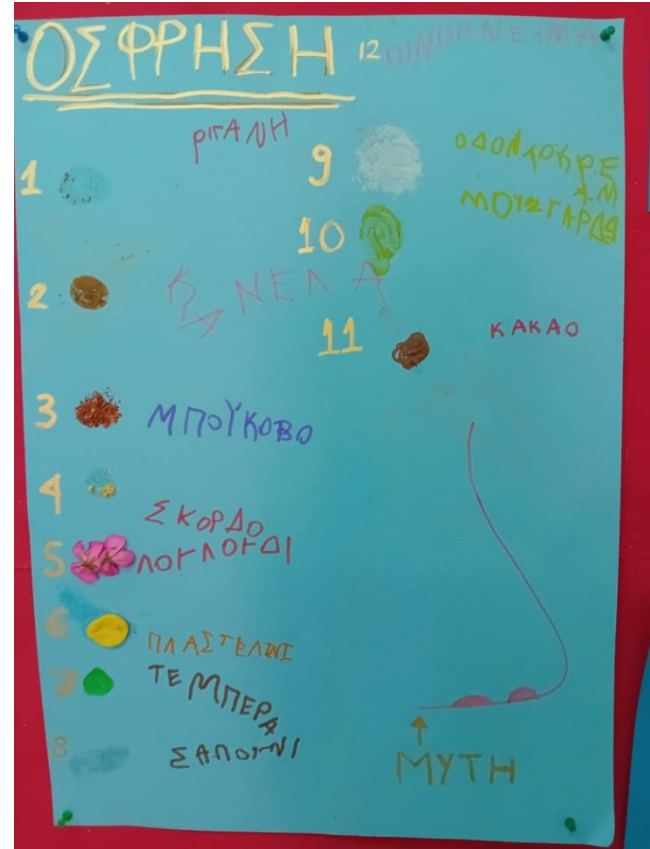 ΟΣΦΡΗΣΗ
12 ΟΙΝΟΠΝΕΥΜΑ
1 ΡΙΓΑΝΗ
2 ΚΑΝΕΛΑ
3 ΜΠΟΥΚΟΒΟ
4 ΣΚΟΡΔΟ
5 ΛΟΥΛΟΥΔΙ
6 ΠΛΑΣΤΕΛΙΝΙ
7 ΤΕΜΠΕΡΑ
8 ΣΑΠΟΥΝΙ
9 ΟΔΟΝΤΟΚΡΕ
ΑΜ
10 ΜΟΥΣΤΑΡΔΑ
11 ΚΑΚΑΟ
ΜΥΤΗ